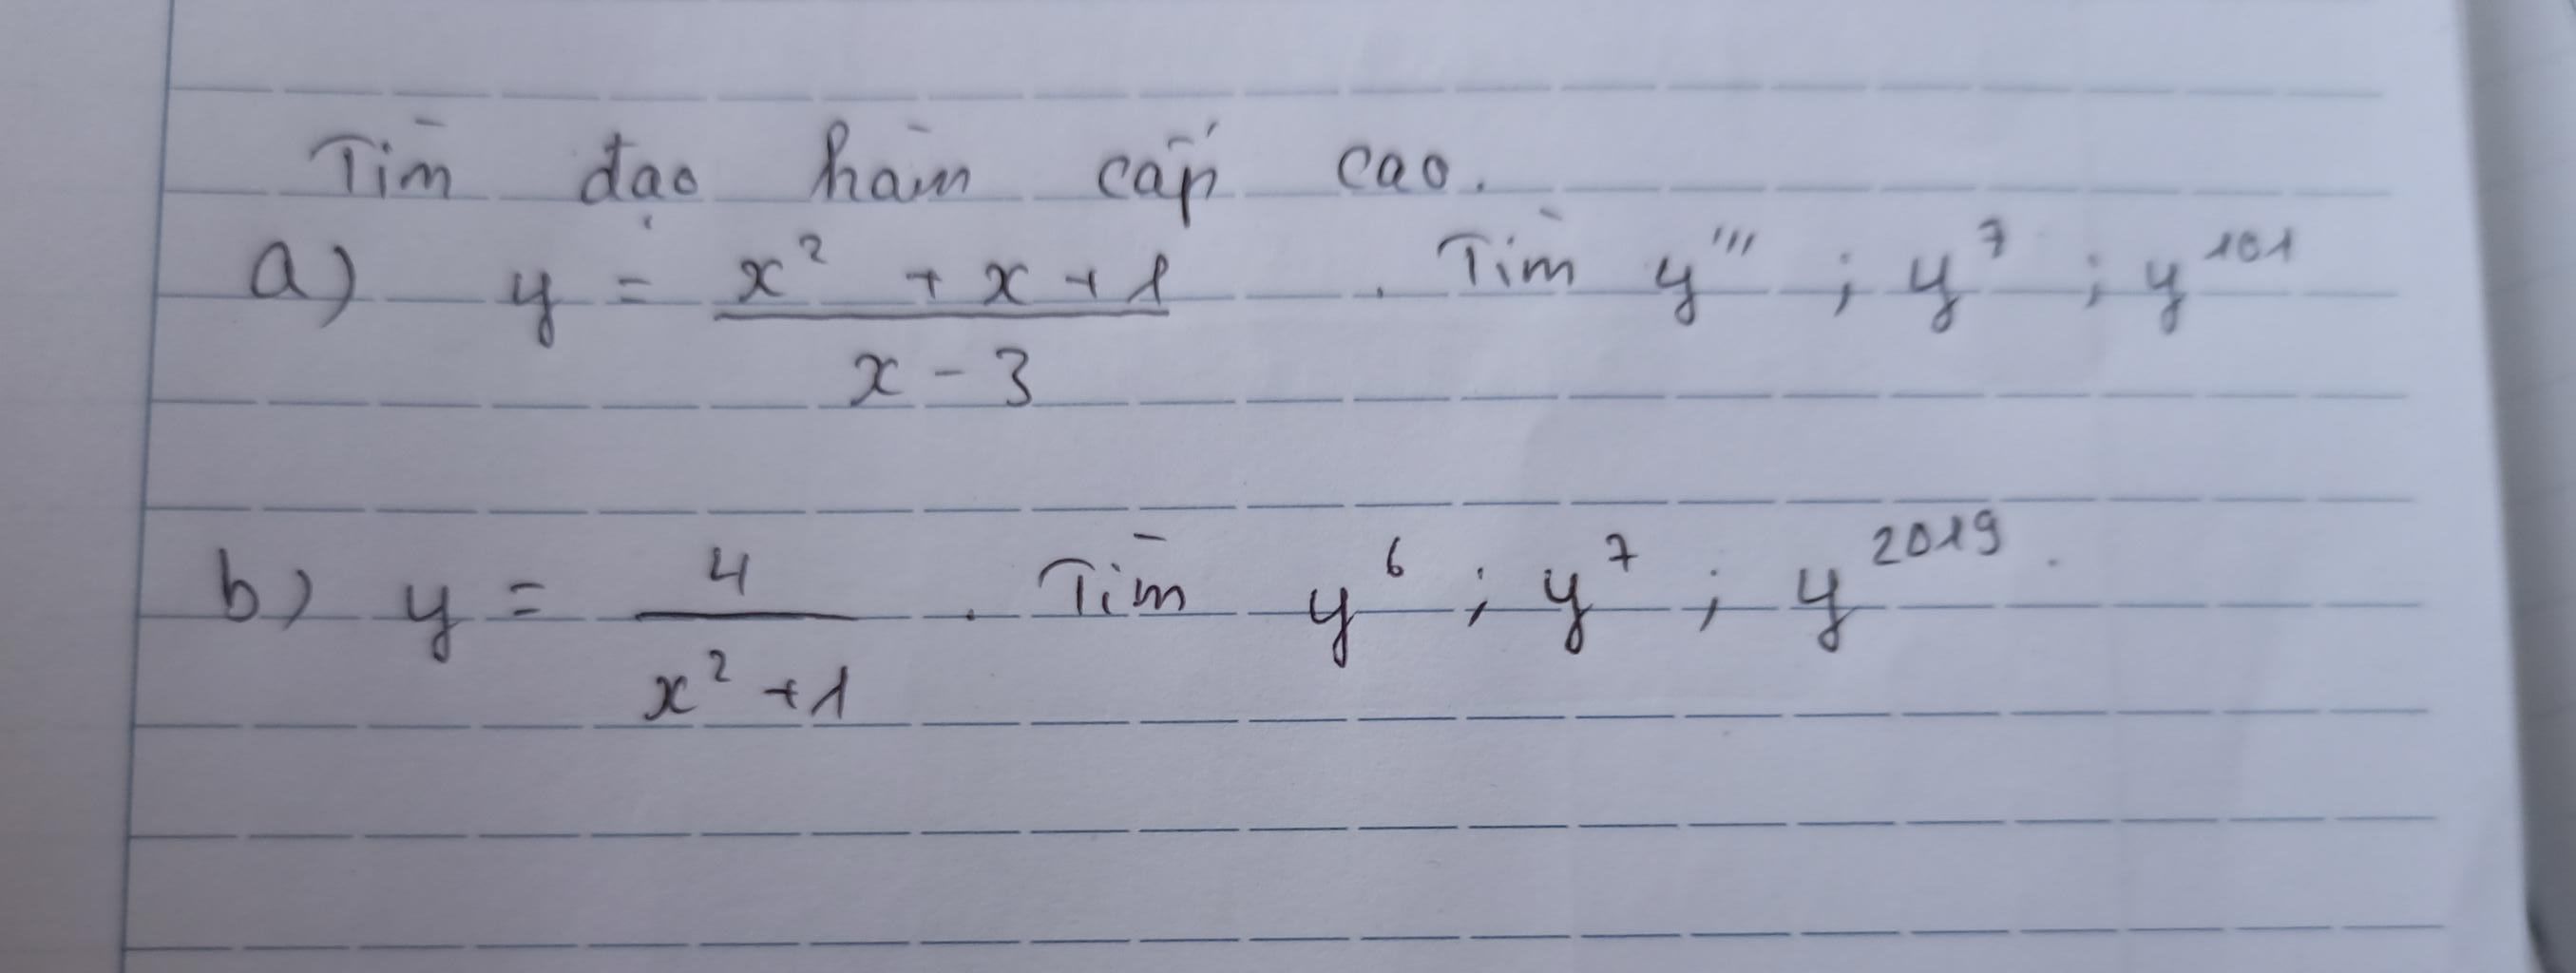 Tìm đạo hàm cấp cao.
a) y = (x² + x + 1)/(x - 3) . Tìm y''' ; y⁷ ; y¹⁰¹
b) y = 4/(x² + 1) . Tìm y⁶ ; y⁷ ; y²⁰¹⁹.